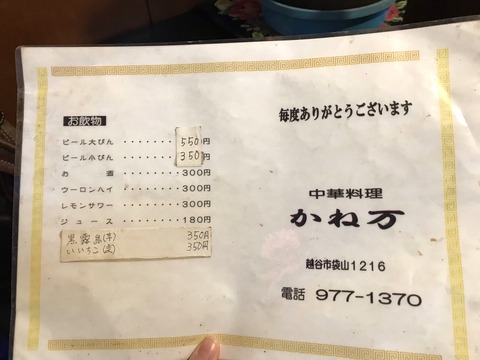 お飲物
ビール大びん・・・・・・・550円
ビール小びん・・・・・・・350円
お酒・・・・・・・300円
ウーロンハイ・・・・・・・300円
レモンサワー・・・・・・・300円
ジュース・・・・・・・180円
黒霧島(芋) 350円
いいちこ(麦) 350円
毎度ありがとうございます
中華料理
かね万
越谷市袋山1216
電話 977-1370